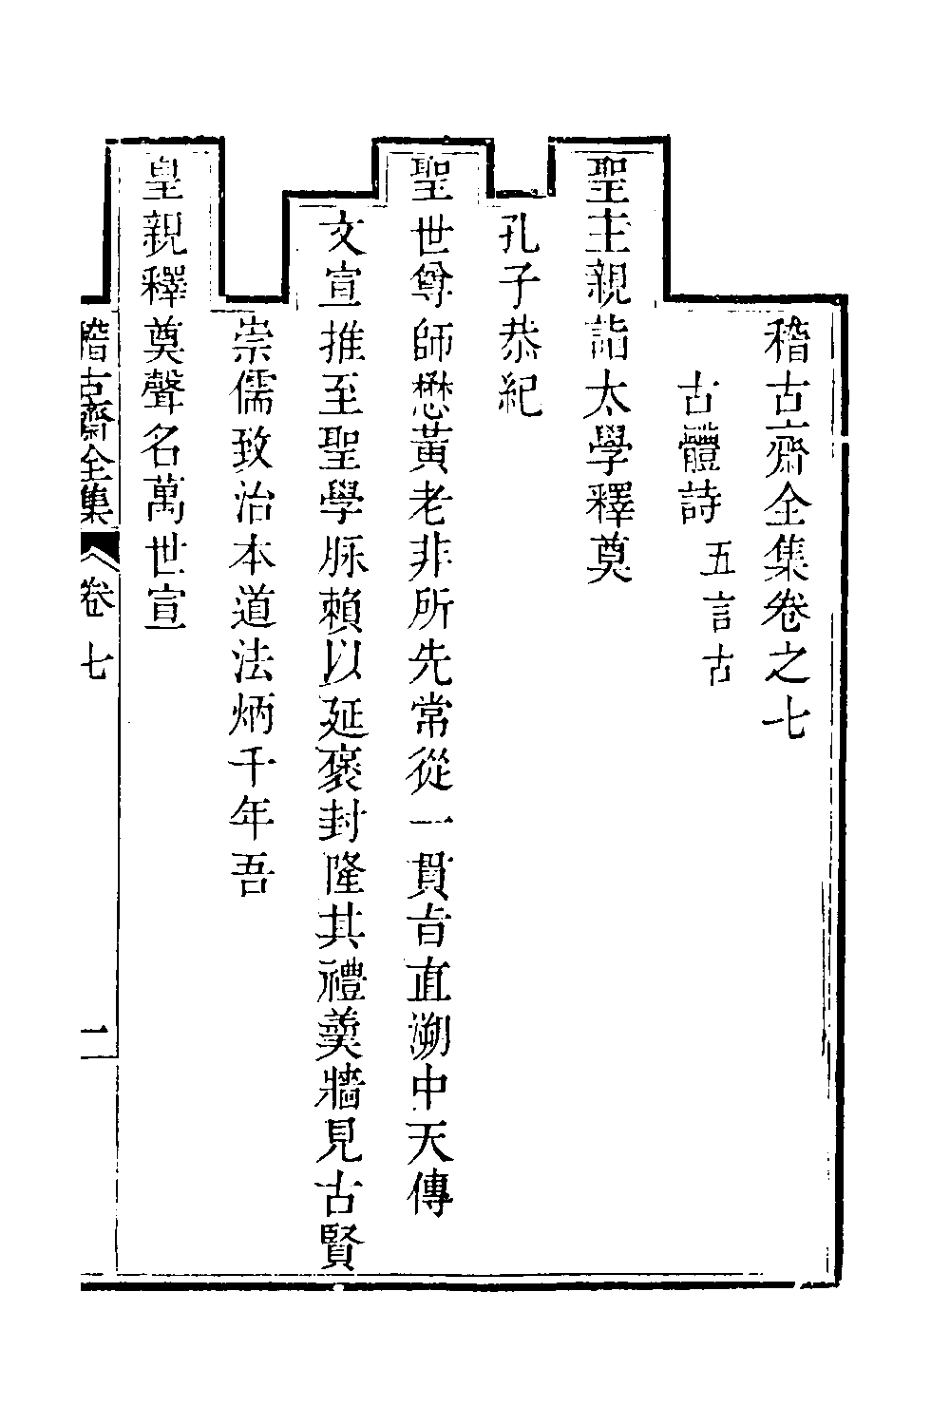 稽古齋全集卷之七
古體詩 五言古
聖主親詣太學釋奠
孔子恭紀
聖世尊師懋黃老非所先常從一貫㫖直溯中天傳
文宣推至聖學脈賴以延褒封隆其禮羹牆見古賢
崇儒致治本道法炳千年吾
皇親釋奠聲名萬世宣
稽古齋全集 卷七 二